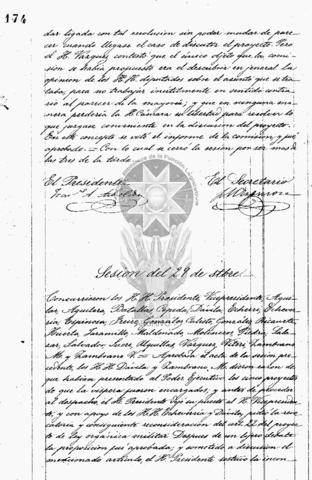 174
dar ligada con tal resolucion sin poder mudar de pare-
cer cuando llegase el caso de discutir el proyecto. Pero
el H. Vásquez contestó que el único objeto que la comi-
sion se habia propuesto era el descubrir en jeneral la
opinion de los H.H. diputados sobre el asunto que se tra-
taba, para no trabajar inutilmente en sentido contra-
rio al parecer de la mayoría; y que en ninguna ma-
nera perdería la H. Cámara su libertad para resolver lo
que juzgare conveniente en la discusion del proyecto.
En este concepto se votó el informe de la comision, y fué
aprobado. = Con lo cual se cerró la sesion por ser mas de
las tres de la tarde.
El Presidente
El Secretario
Sesion del 29 de stbre
Concurrieron los H.H. Presidente, Vicepresidente, Agui-
lar, Aguilera, Batallas, Cepeda, Dávila, Echeverría,
Espinosa, Freire, González Calisto, González,
Huerta, Jaramillo, Maldonado, Molineros, Piedra, Sala-
zar, Salvador, Vásquez, Viteri, Zambrano
M. y Zambrano V. = Aprobada el acta de la sesion pre-
cedente, los H.H. Dávila y Zambrano M. dieron razon de
que habian presentado al Poder Ejecutivo los cinco proyectos
de que la víspera fueron encargados, y antes de proceder
al despacho, el H. Presidente dejó su puesto al H. Vicepresiden-
te, y con apoyo de los H.H. Echeverría y Dávila, pidió la revo-
catoria y consiguiente reconsideracion del art. 22 del proyec-
to de ley orgánica militar. Despues de un lijero debate
la proposicion fué aprobada; y sometido a discusion el
mencionado artículo, el H. Presidente sostuvo la incon-